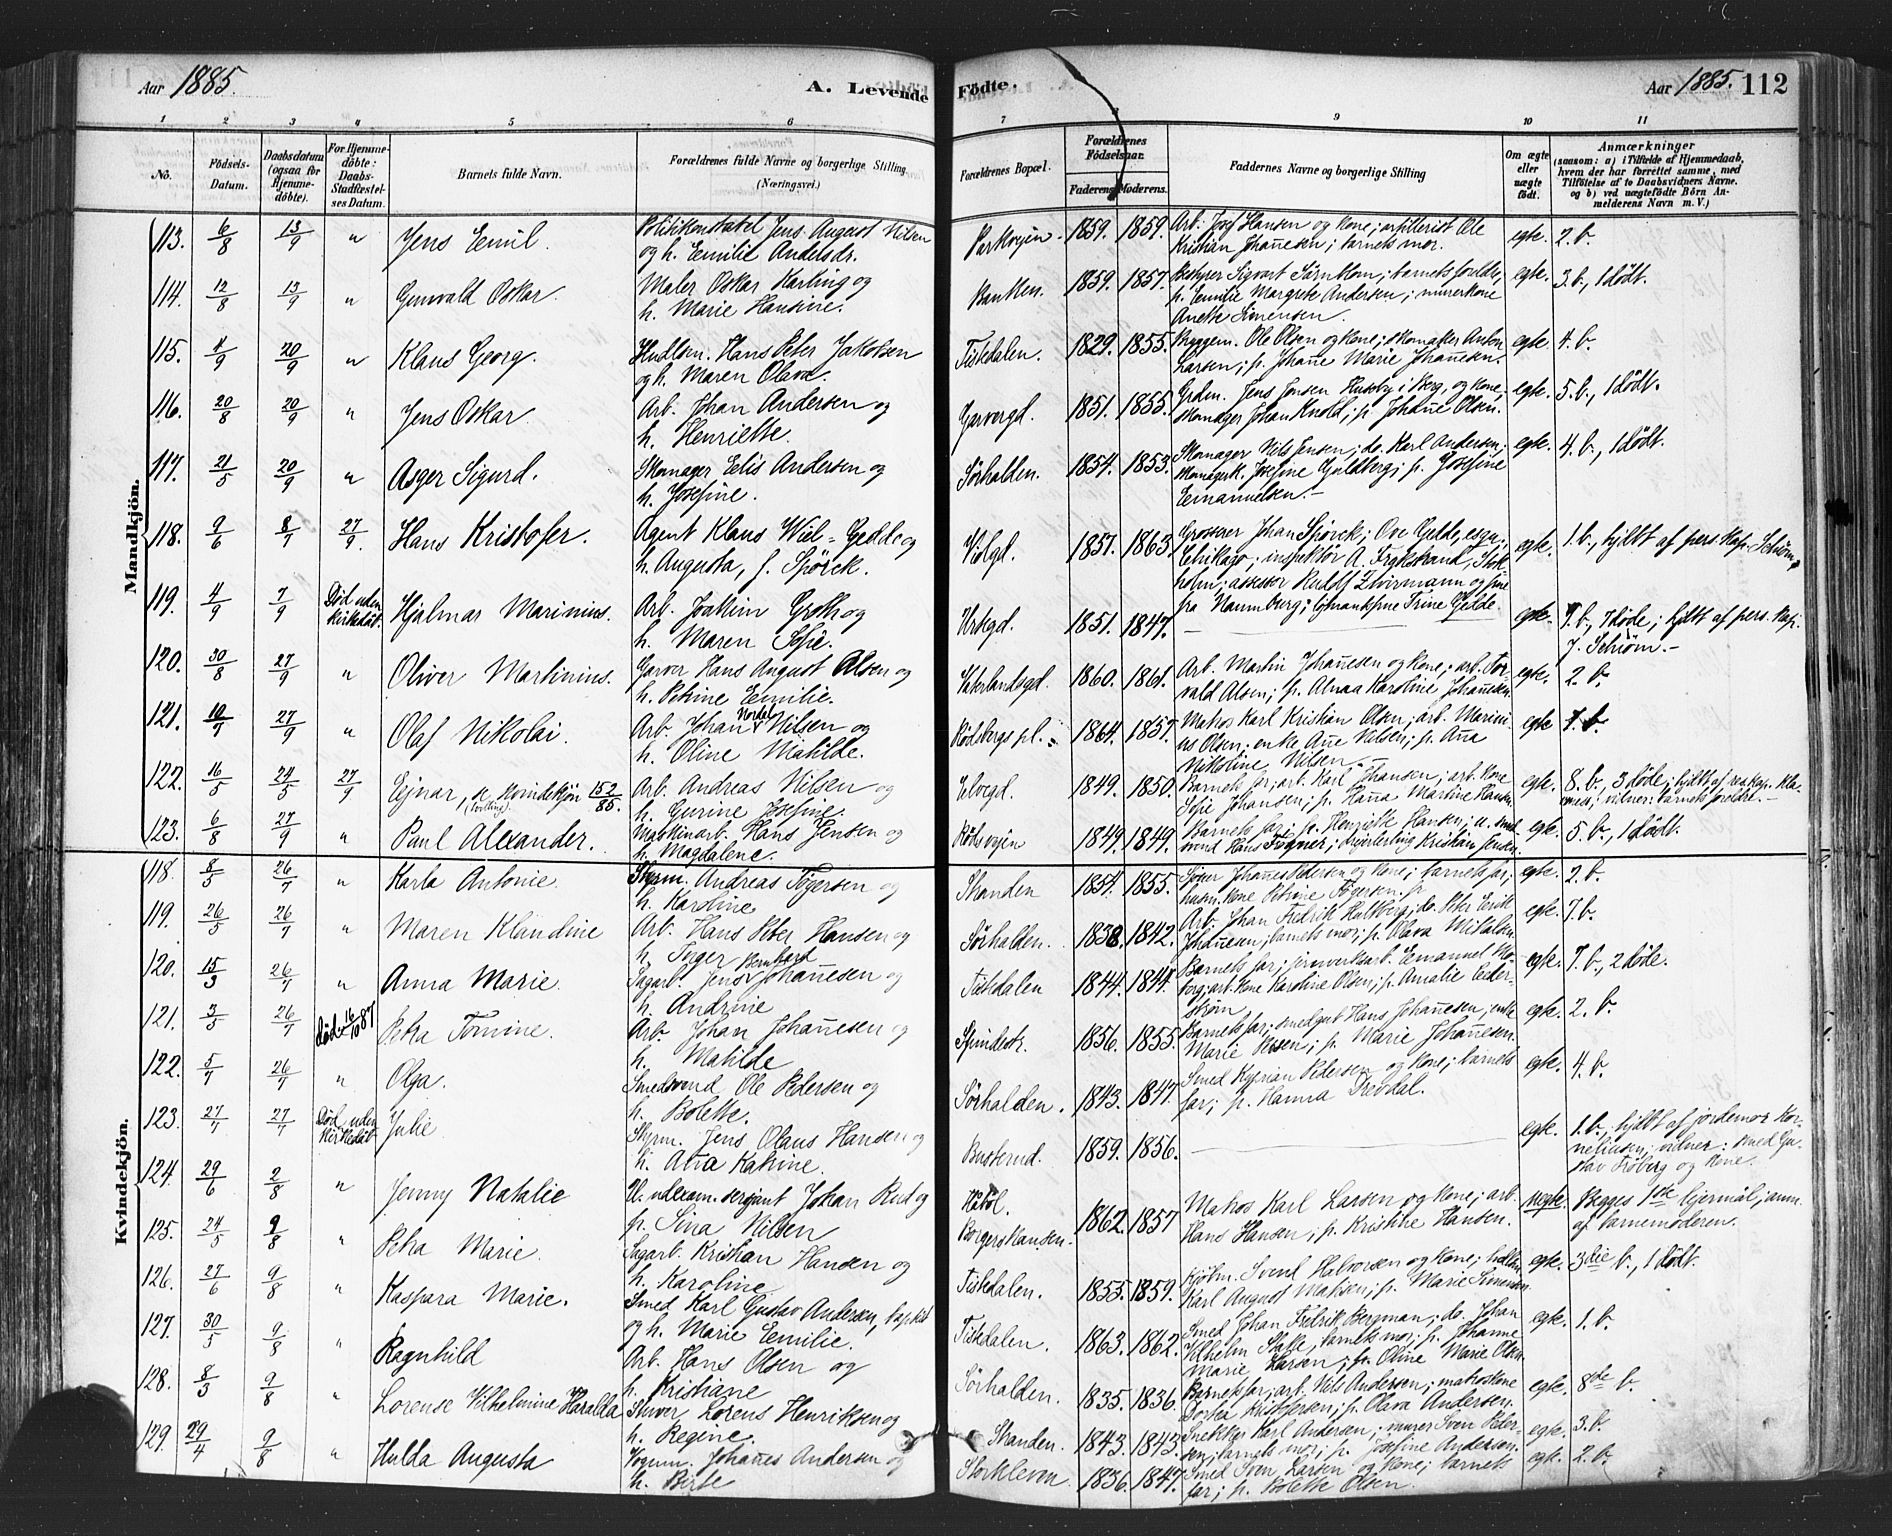 Aar 1885. A. Levende Födte. Aar 1885. 112
1 2 3 4 5 6 7 8 9 10 11
No. Födsels-Datum. Daabsdatum (ogsaa for Hjemmedöbte). For Hjemmedöbte: Daabs-Stadfæstelses Datum. Barnets fulde Navn. Forældrenes fulde Navne og borgerlige Stilling (Næringsvei.) Forældrenes Bopæl. Forældrenes Födselsaar. Faderens. Moderens. Faddernes Navne og borgerlige Stilling Om ægte eller uægte födt. Anmærkninger (saasom: a) i Tilfælde af Hjemmedaab, hvem der har forrettet samme, med Tilföielse af to Daabsvidners Navne. og b) ved uægtefödte Börn Anmelderens Navn m. V.)
Mandkjön.
113. 6/8 13/9 " Jens Emil. Politikonstabel Jens August Nilsen og h. Emilie Andelsdr. 1859. 1859. Arb. Josef Hansen og kone; artillerist Ole Kristian Johannesen; barnets mor. egte. 2. b.
114. 12/8 13/9 " Gunvald Oskar. Maler Oskar Karling og h. Marie Hansine. Banken. 1859. 1857. barnets forældre, p. Emilie Margrete Andersen; murerkone Anette Simensen. egte. 3. b., 1 dödt.
115. 4/9 20/9 " Klaus Georg. Hans Peter Jakobsen og h. Maren Olava. Tistedalen. 1829. 1855. Byggem. Ole Olsen og kone; skomaker Anton Larsen; p. Johanne Marie Johannesen. egte. 4. b.
116. 20/8 20/9 " Jens Oskar. Arb. Johan Andersen og h. Henriette. Garvergd. 1851. 1855. Grdm. Jens Jensen Huseby i Berg, og kone, skomager Johan Knold; p. Johanne Olsen. egte. 5. b., 1 dödt.
117. 21/5 20/9 " Asger Sigurd. Skomager Edis Andersen og h. Josefine. Sørhalden. 1854. 1853. Skomager Nils Jensen; do. Karl Andersen; skomagerk. Josefine Guldberg; p. Josefine Emanuelsen. egte. 4. b., 1 dödt.
118. 9/6 8/7 27/9. Hans Kristofer. Agent Klaus Wiel-Gedde og h. Augusta, f. Spörck. Volgd. 1857. 1863. Grosserer Johan Spörck; Ove Gedde, inspektör A. Frykstrand, Stokholm; assessor Rudolf og frue fra Naumburg; Trine Gedde. egte. 1. b., hjdbt af pers. kap. Schiøm.
119. 4/9 7/9 Död uden kirkedåb. Hjalmar Marinius. Arb. Joakim Groth og h. Maren Sofie. Urtegd. 1851. 1847. — egte. 9. b., 7 døde; hjdbt af pers. kap. J. Schiøm.
120. 30/8 27/9 " Oliver Martinius. Garver Hans August Olsen og h. Petrine Emilie. 1860. 1861. Arb. Martin Johannesen og kone; arb. Torvald Olsen; p. Alma Karoline Johannesen. egte. 2. b.
121. 10/7 27/9 " Olaf Nikolai. Arb. Johan Nordal Nilsen og h. Oline Matilde. Rødsbergs pl. 1864. 1857. Matros Karl Kristian Olsen; arb. Marinius Olsen; enke Ane Nilsen; p. Ana Nikoline Nilsen. egte 1. b.
122. 16/5 24/5 27/9 Ejnar, se Kvindekjön 152/85. (tvilling) Arb. Andreas Nilsen og h. Gurine Josefine. Elvegd. 1849. 1850. Barnets far; arb. Karl Johansen; arb. kone Sofie Johansen; p. Hanna Martine Hansen. egte. 8. b., 3 døde; hjdbt af res. kap. Klamed; vidner: barnets forældre.
123. 6/8 27/9 " Paul Alexander. Maskinarb. Hans Jensen og h. Magdalene. Rödsvejen 1849. 1849. Barnets far; p. Henriette Hansen; Hans Fogner; Kristian Jensen. egte. 5. b., 1 dödt.
Kvindekjön.
118. 8/5 26/7 " Karla Antonie. Styrm. Andreas Tygersen og h. Karoline Skanden 1854. 1855. Johannes Pedersen og kone; barnets far; husm. kone Petrine Tygersen. egte. 2. b.
119. 26/5 26/7 " Maren Klaudine Arb. Hans Peter Hansen og h. Inger Sørhalden. 1838. 1842. Arb. Johan Fredrik Hultberg; do. Peter Erik Johannesen; barnets mor; p. Olava Mikalsen. egte. 7. b.
120. 15/3 26/7 " Anna Marie. Sagarb. Jens Bernhard Johannesen og h. Andrine Tistedalen 1844. 1844. Barnets far; jernverksarb. Emanuel Moberg; arb. kone Karoline Olsen; p. Amalie Cederstrøm. egte. 7. b., 2 döde.
121. 3/5 26/7 död 16/10 87 Petra Tomine. Arb. Johan Johannesen og h. Matilde Spindestr. 1856. 1855. Barnets far; smedgut Hans Johannesen, enke Marie Olsen; p. Marie Johannesen. egte. 2. b.
122. 5/7 26/7 " Olga. Smedsvend Ole Pedersen og h. Bolette. Sørhalden. 1843. 1847. Smed Kyprian Pedersen og kone; barnets far; p. Hanna Dredal. egte. 4. b.
123. 27/7 27/7 Död uden kirkedåb Julie Styrm. Jens Olaus Hansen og h. Ana Katrine. Busterud. 1859. 1856. — egte. 1. b., hjdbt af jordemor Kornelinsen; vidner: smed Gustav Fröberg og kone.
124. 29/6 2/8 " Jenny Natalie U. udexam. sergeant Johan Rud og p. Sina Nilsen Håböl. Borgerskansen. 1862. 1857 Matros Karl Larsen og kone; arb. Hans Hansen; p. Kristine Hansen. uegte. Begges 1ste lejermål; anm. af barnemoderen.
125. 24/5 9/8 " Petra Marie. Sagarb. Kristian Hansen og h. Karoline Tistedalen. 1855. 1859. Kjöbm. Svend Halvorsen og kone; Karl August Madsen; p. Marie Simensen. egte. 3die b., 1 dödt.
126. 27/6 9/8 " Kaspara Marie. Smed Karl Gustav Andersen, baptist og h. Marie Emilie. Tistedalen. 1863. 1862. Smed Johan Fredrik Bergman; do. Johan Vilhelm Stalle, barnets mor; p. Johanne Marie Larsen; p. Oline Marie Olsen. egte. 1. b.
127. 30/5 9/8 " Ragnhild Arb. Hans Olsen og h. Kristiane Sørhalden. 1835. 1836. Barnets far; arb. Nils Andersen; matroskone Dortea Kristofersen; p. Olava Andersen. egte. 8de b.
128. 8/3 9/8 " Lorense Vilhelmine Haralda Snover Lorens Henriksen og h. Regine. Skanden. 1843. 1843. Snekker Karl Andersen; murer Sven Pedersen; barnets mor; p. Josefine Andersen. egte. 3. b.
129. 29/4 9/8 " Hulda Augusta Vognm. Johannes Andersen og h. Berte Storkleven 1836. 1847. Smed Sven Larsen og kone; barnets far; p. Bolette Olsen. egte. 2. b.